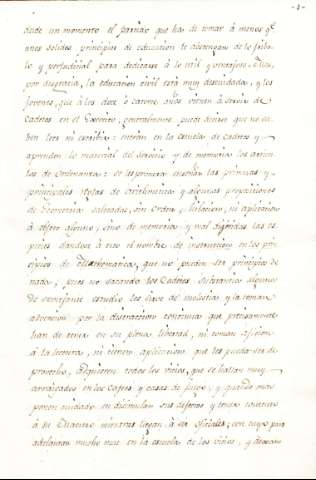 dude un momento el partido que ha de tomar à menos qe
unos solidos principios de educacion le abstengan de lo
y perjudicial para dedicarse à lo util y ventajoso.
por disgracia, la educacion civil está muy descuidada, y los
Jovenes, que à los doce ò catorce años vienen à servir de
Cadetes en el Exercito, generalmente puede decirse que no sa-
ben leer ni escribir: entran en la escuela de Cadetes y
aprenden lo material del servicio y de memoria los articu-
los de Ordenanza: se les enseñan las primeras y
principales reglas de Arithmetica y algunas proposiciones
de Geometria salteadas, sin orden, ni aplicacion
à objeto alguno, sino de memoria y mal digeridas las es-
pecies dandose à esto el nombre de instruccion en los prin-
cipios de Mathematica, que no pueden ser principios de
nada, pues no sacando los Cadetes substancia alguna
de semejante estudio les sirve de molestia y la toman
aversion por la distraccion continua que precisamente
han de tener en su plena libertad, ni toman aficion
à la lectura, ni tienen aplicacion que les pueda ser de
provecho, adquieren todos los vicios, que se hallan muy
arraigados en los Cafees y casas de juego, y quando mas
ponen cuidado en disimular sus defectos y tener
à su Quartel mientras llegan à ser oficiales, en cuyo
adelantan mucho mas en la escuela de los vicios, y